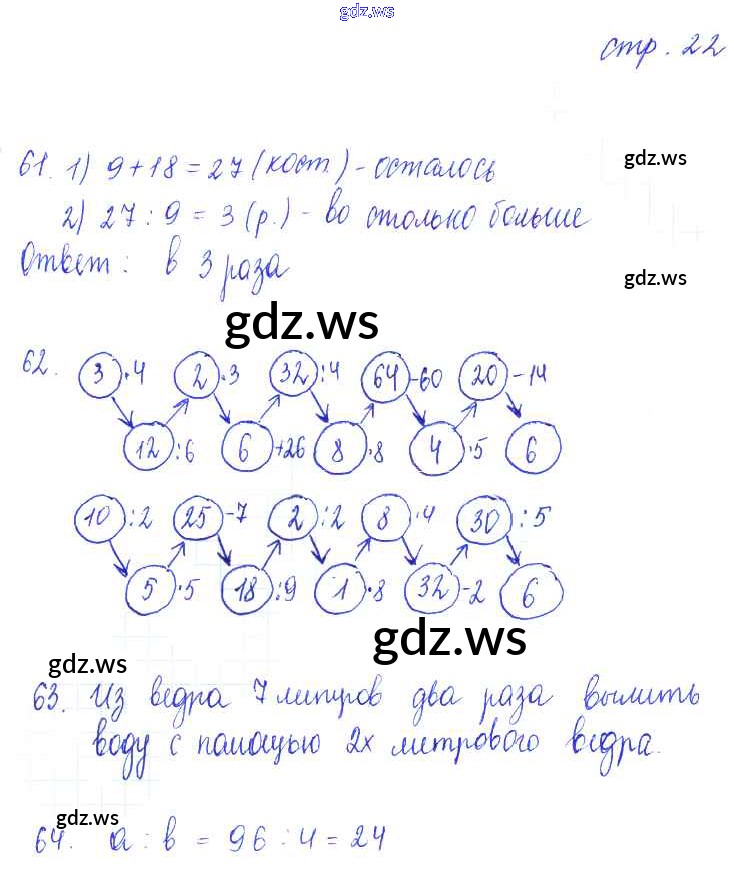 gdz.ws
стр. 22
61. 1) 9+18=27 (кост.) - осталось
gdz.ws
2) 27:9=3 (р.) - во столько больше
Ответ: в 3 раза
gdz.ws
gdz.ws
62. 3 ·4 2 ·3 32 :4 64 -60 20 -14
12 :6 6 +26 8 ·8 4 ·5 6
10 :2 25 -7 2 :2 8 ·4 30 :5
5 ·5 18 :9 1 ·8 32 -2 6
gdz.ws
gdz.ws
63. Из ведра 7 литров два раза вылить
воду с помощью 2х метрового ведра.
gdz.ws
64. a : b = 96 : 4 = 24